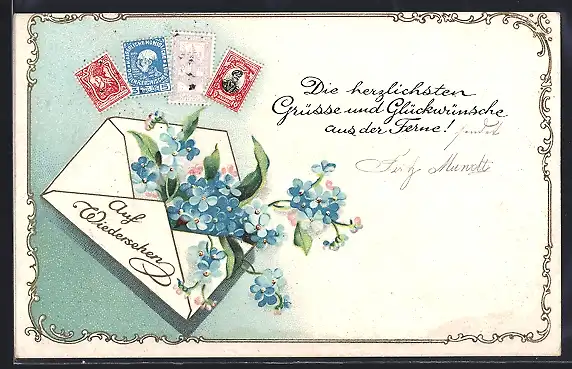 Die herzlichsten
Grüsse und Glückwünsche
aus der Ferne! sendet
Fritz
Auf
Wiedersehen